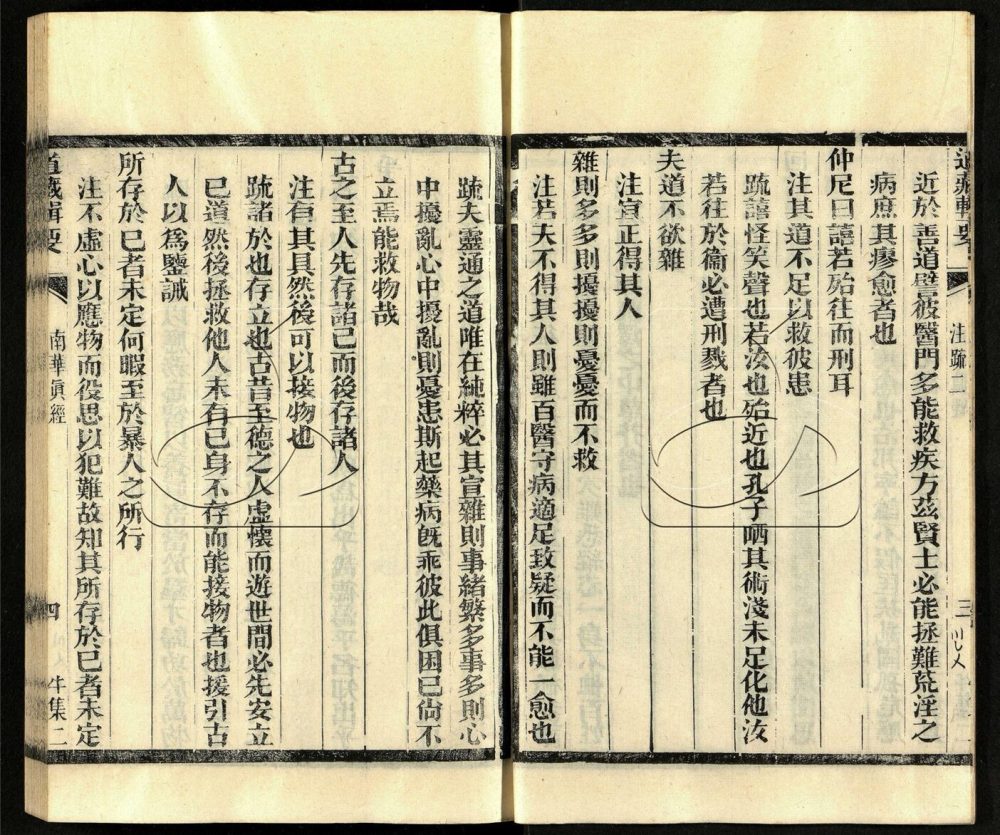 道藏輯要
注疏二
三
近於善道譬彼醫門多能救疾方茲賢士必能拯難荒淫之
病庶其瘳愈者也
仲尼曰譆若殆往而刑耳
注其道不足以救彼患
疏譆怪笑聲也若汝也殆近也孔子哂其術淺未足化他汝
若往於衞必遭刑戮者也
夫道不欲雜
注宜正得其人
雜則多多則擾擾則憂憂而不救
注若夫不得其人則雖百醫守病適足致疑而不能一愈也
疏夫靈通之道唯在純粹必其宜雜則事緒繁多事多則心
中擾亂心中擾亂則憂患斯起藥病旣乖彼此俱困己尙不
立焉能救物哉
古之至人先存諸己而後存諸人
注有其具然後可以接物也
疏諸於也存立也古昔至德之人虛懷而遊世間必先安立
己道然後拯救他人未有己身不存而能接物者也援引古
人以爲鑒誡
所存於己者未定何暇至於暴人之所行
注不虛心以應物而役思以犯難故知其所存於己者未定
道藏輯要
南華眞經
四
牛集二